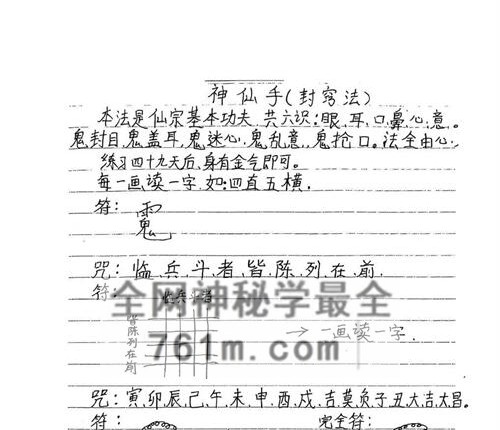 神仙手(封穷法)
本法是仙宗基本功夫,共六识:眼、耳、口、鼻、心、意。
鬼封目,鬼盖耳,鬼迷心,鬼乱意,鬼抢口。法全由心,
练习四十九天后,身有金气即可。
每一画读一字,如:四直五横,
符:
咒:临、兵、斗、者、皆、陈、列、在、前。
符:
临兵斗者
皆陈列在前
→一画读一字.
全网神秘学最全
761m.com
咒:寅、卯、辰、己、午、未、申、酉、戍、吉莫负子丑大吉大昌。
符:
完全符: